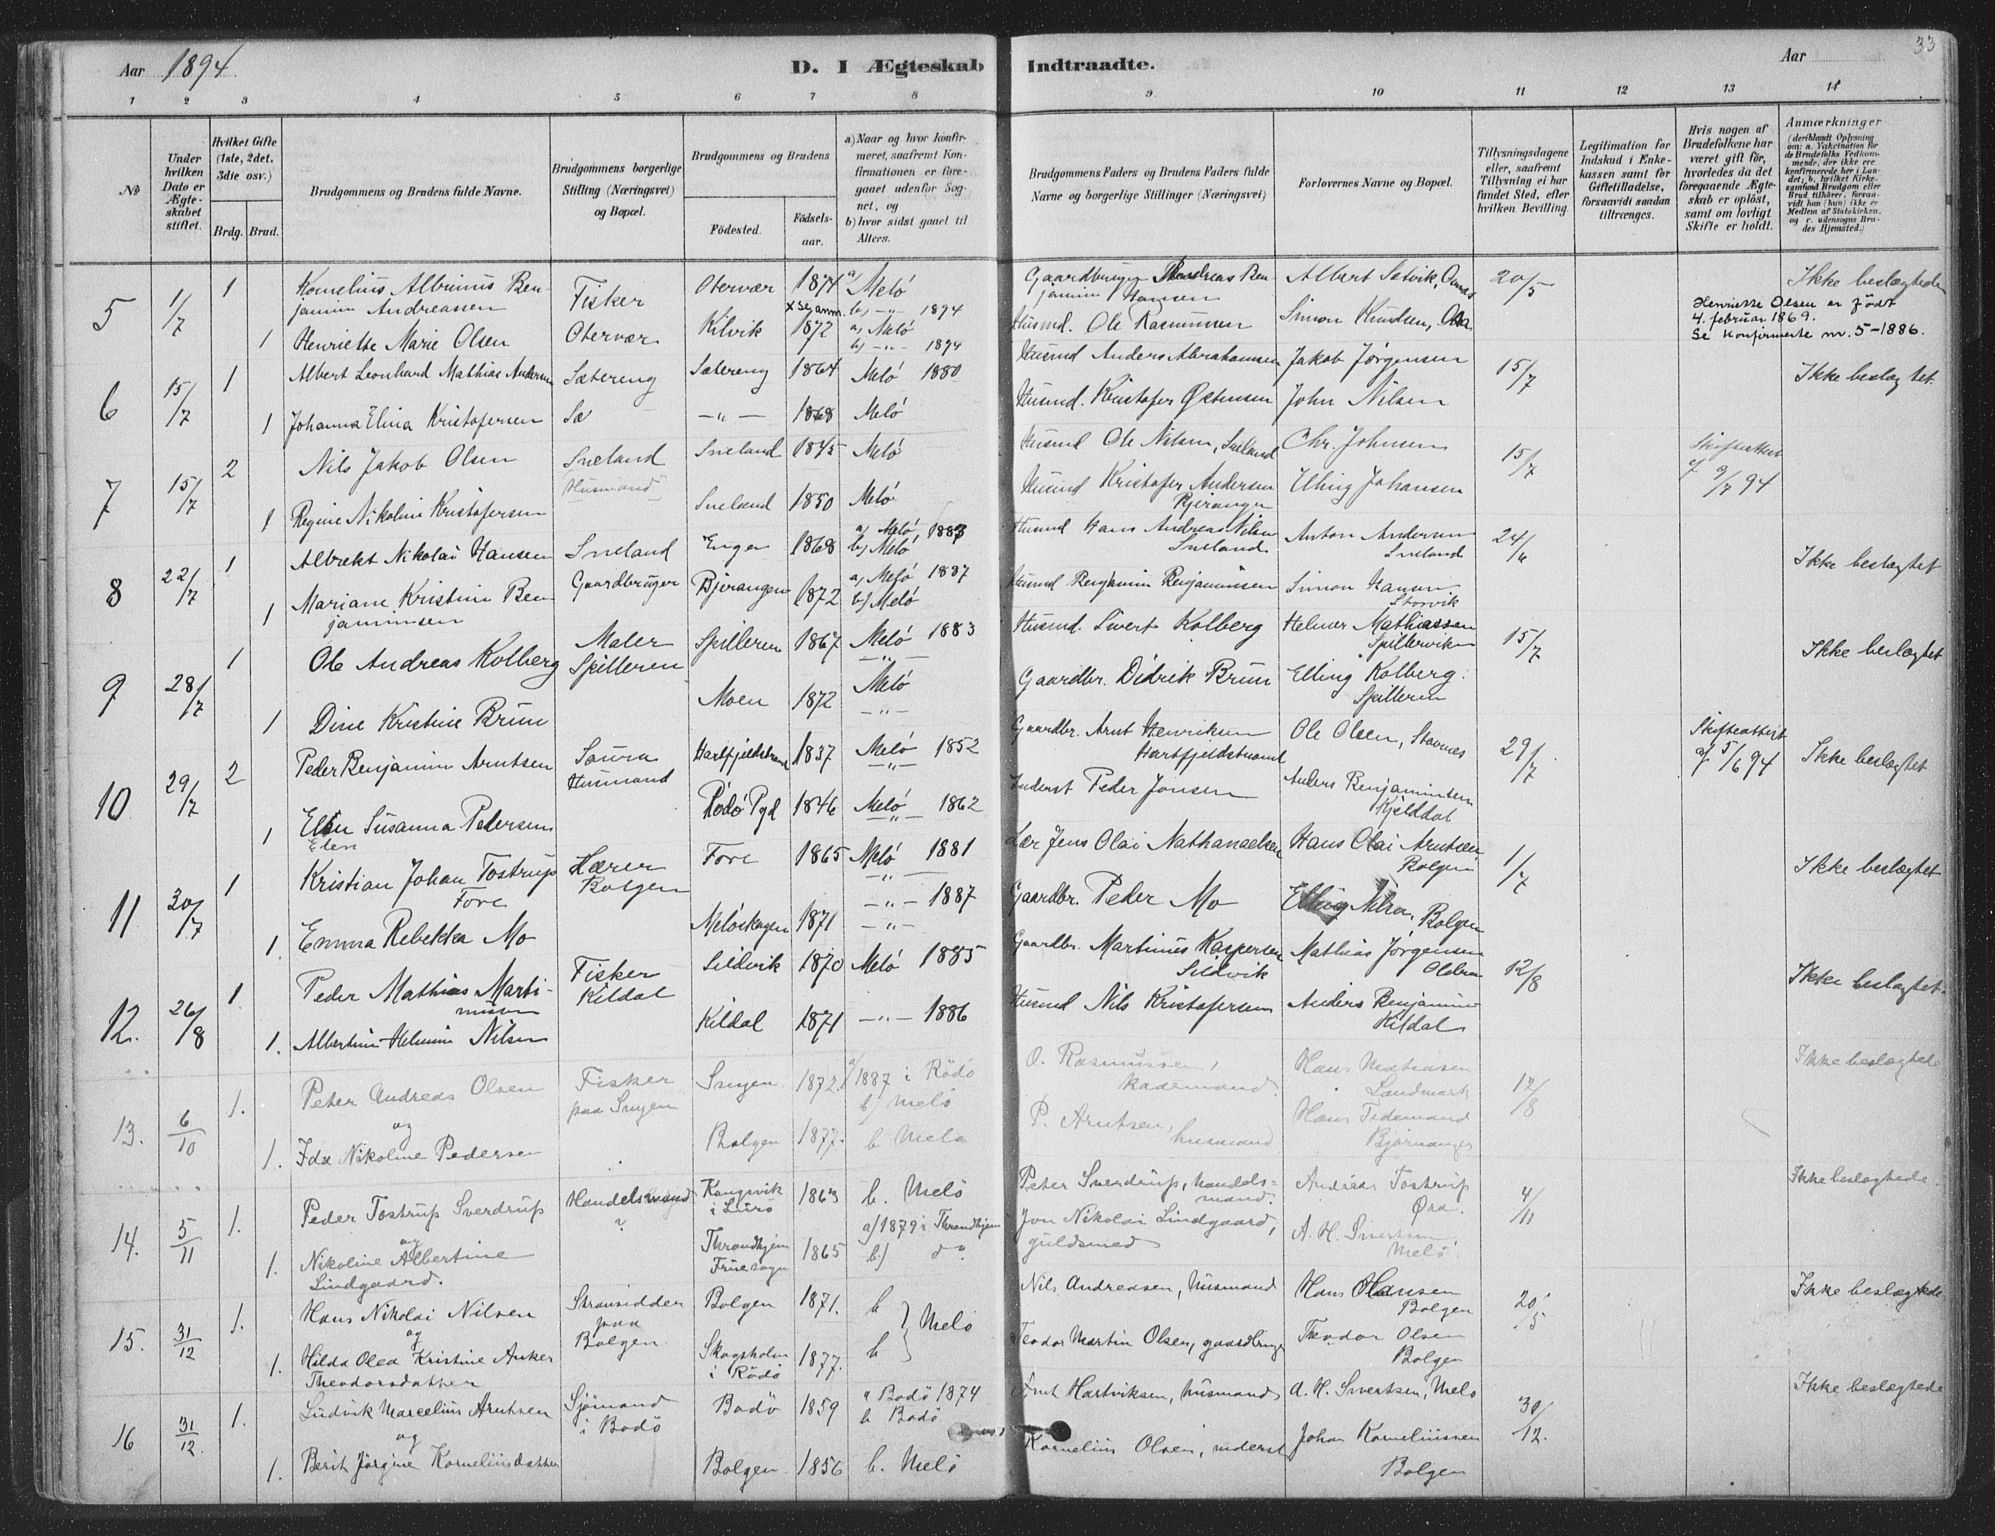 Aar 1894.
D. I Ægteskab Indtraadte.
Aar
33
1 2 3 4 5 6 7 8 9 10 11 12 13 14
No
Under hvilken Dato er Ægteskabet stiftet.
Hvilket Gifte (1ste, 2det, 3die osv.)
Brdg. Brud.
Brudgommens og Brudens fulde Navne.
Brudgommens borgerlige Stilling (Næringsvei) og Bopæl.
Brudgommens og Brudens
Fødested.
Fødselsaar.
a) Naar og hvor konfirmeret, saafremt Konfirmationen er foregaaet udenfor Sognet, og
b) hvor sidst gaaet til Alters.
Brudgommens Faders og Brudens Faders fulde Navne og borgerlige Stillinger (Næringsvei)
Forlovernes Navne og Bopæl.
Tillysningsdagene eller, saafremt Tillysning ei har fundet Sted, efter hvilken Bevilling
Legitimation for Indskud i Enkekassen samt for Giftetilladelse, forsaavidt saadan tiltrænges.
Hvis nogen af Brudefolkene har været gift før, hvorledes da det foregaaende Ægteskab er opløst, samt om lovligt Skifte er holdt.
Anmærkninger (deriblandt Oplysning om: a. Vakcination for de Brudefolks Vedkommende, der ikke ere konfirmerede her i Landet; b. hvilket Kirkesamfund Brudgom eller Brud tilhører, forsaavidt han (hun) ikke er Medlem af Statskirken, og c. udensogns Brudes Hjemsted.)
5 1/7 1 Kornelius Albinus Benjamin Andreassen Fisker Otervær 1874 a) Melö b) -"- 1894 Gaardbruger Andreas Benjamin Hansen Albert Setvik, 20/5 Ikke beslægtede
x se anm.
1 Henriette Marie Olsen Otervær Kilvik 1872 a) Melö b) -"- 1894 Husmd. Ole Rasmussen Simon Knudsen,
Henriette Olsen er født 4. februar 1869. Se Konfirmerte nr. 5-1886.
6 15/7 1 Albert Leonhard Mathias Andersen Sætereng Sætereng 1864 Melö 1880 Husmd Anders Abrahamsen Jakob Jørgensen 15/7 Ikke beslægtet
1 Johanna Elina Kristofersen -"- 1868 Melö Husmd. Kristofer Østensen John Nilsen
7 15/7 2 Nils Jakob Olsen Sneland Husmand Sneland 1845 Melö Husmd Ole Nilsen, Sneland Chr. Johnsen 15/7 Skifteattest af 9/7 94
1 Regine Nikoline Kristofersen Sneland 1850 Melö Husmd Kristofer Andersen Elling Johansen
8 22/7 1 Albrekt Nikolai Hansen Sneland Gaardbruger Engen 1868 a) Melö 1883 b) Melö Husmd Hans Andreas Nilsen Sneland Anton Andersen Sneland 24/6 Ikke beslægtet
1 Mariane Kristine Benjaminsen Bjerangen 1872 a) Melö 1887 b) Melö Husmd Benjamin Benjaminsen Simon Hansen Storvik
9 28/7 1 Ole Andreas Kolberg Maler Spilleren Spilleren 1867 Melö 1883 -"- Husmd. Sivert Kolberg Helmer Mathiassen Spillervik 15/7 Ikke beslægtet
1 Dine Kristine Brun Moen 1872 Melö -"- Gaardbr. Didrik Brun Elling Kolberg Spilleren
10 29/7 2 Peder Benjamin Arntsen Saura Husmand Hartfjeldstrand 1837 Melö 1852 -"- Gaardbr. Arnt Henriksen Hartfjeldstrand Ole Olsen, Stavnes 29/7 Skifteattest af 5/6 94 Ikke beslægtet
1 Ellen Susanna Pedersen Elen Rödö Pgd 1846 Melö 1862 -"- Inderst Peder Jonsen Anders Benjaminsen Kjelddal
11 30/7 1 Kristian Johan Tostrup Fore Lærer Bolgen Fore 1865 Melö 1881 -"- Lær Jens Olai Nathanaelsen Hans Olai Arntsen Bolgen 1/7 Ikke beslægtet
1. Emma Rebekka Mo Melöskogen 1871 -"- 1887 -"- Gaardbr. Peder Mo Elling Bolgen
12. 26/8 1. Peder Mathias Martinussen Fisker Kildal Sildvik 1870 Melö 1885 Gaardbr. Martinus Kaspersen Sildvik Mathias Jørgensen Oldren 12/8 Ikke beslægtet.
1. Albertine Helmine Nilsen Kildal 1871 -"- 1886 Husmd Nils Kristofersen Anders Benjaminsen Kildal
13. 6/10 1. Peter Andreas Olsen og Fisker paa Sngen Sngen 1872 a/1887 i Rödö b/ Melö O. Rasmussen, Hans Matiasen Landmark 12/8 Ikke beslægtede
1. Ida Nikoline Pedersen Bolgen 1877. b Melö P. Arntsen, husmand Hans Tidemand
14. 5/11 1. Peder Tostrup Sverdrup og Handelsmand Kongsvik i Lurö 1863 b. Melö Peter Sverdrup, handelsmand. Andreas Tostrup Øra. 4/11 Ikke beslægtede.
1. Nikoline Albertine Lindgaard. Throndhjem Fruesogn 1865 a/1879 i Throndhjem b.) do. Jon Nikolai Lindgaard, guldsmed A. H. Sivertsen Melö.
15. 31/12 1. Hans Nikolai Nilsen og Strandsidder paa Bolgen Bolgen 1871. b } Melö Nils Andreasen, husmand Hans Hansen Bolgen 20/5 Ikke beslægtede
1. Hilda Olea Kristine Anker Theodorsdatter Skogsholm i Rödö 1877. b Teodor Martin Olsen, gaardbruger Theodor Olsen Bolgen
16 31/12. 1. Ludvik Marcelius Arntsen og Sjömand i Bodö Bodö 1859 a Bodö 1874 b Bodö Arnt Hartviksen, husmand A. H. Sivertsen, Melö 30/12. Ikke beslægtede
1. Berit Jörgine Korneliusdatter Bolgen 1856 b. Melö Kornelius Olsen, inderst Johan Korneliussen Bolgen